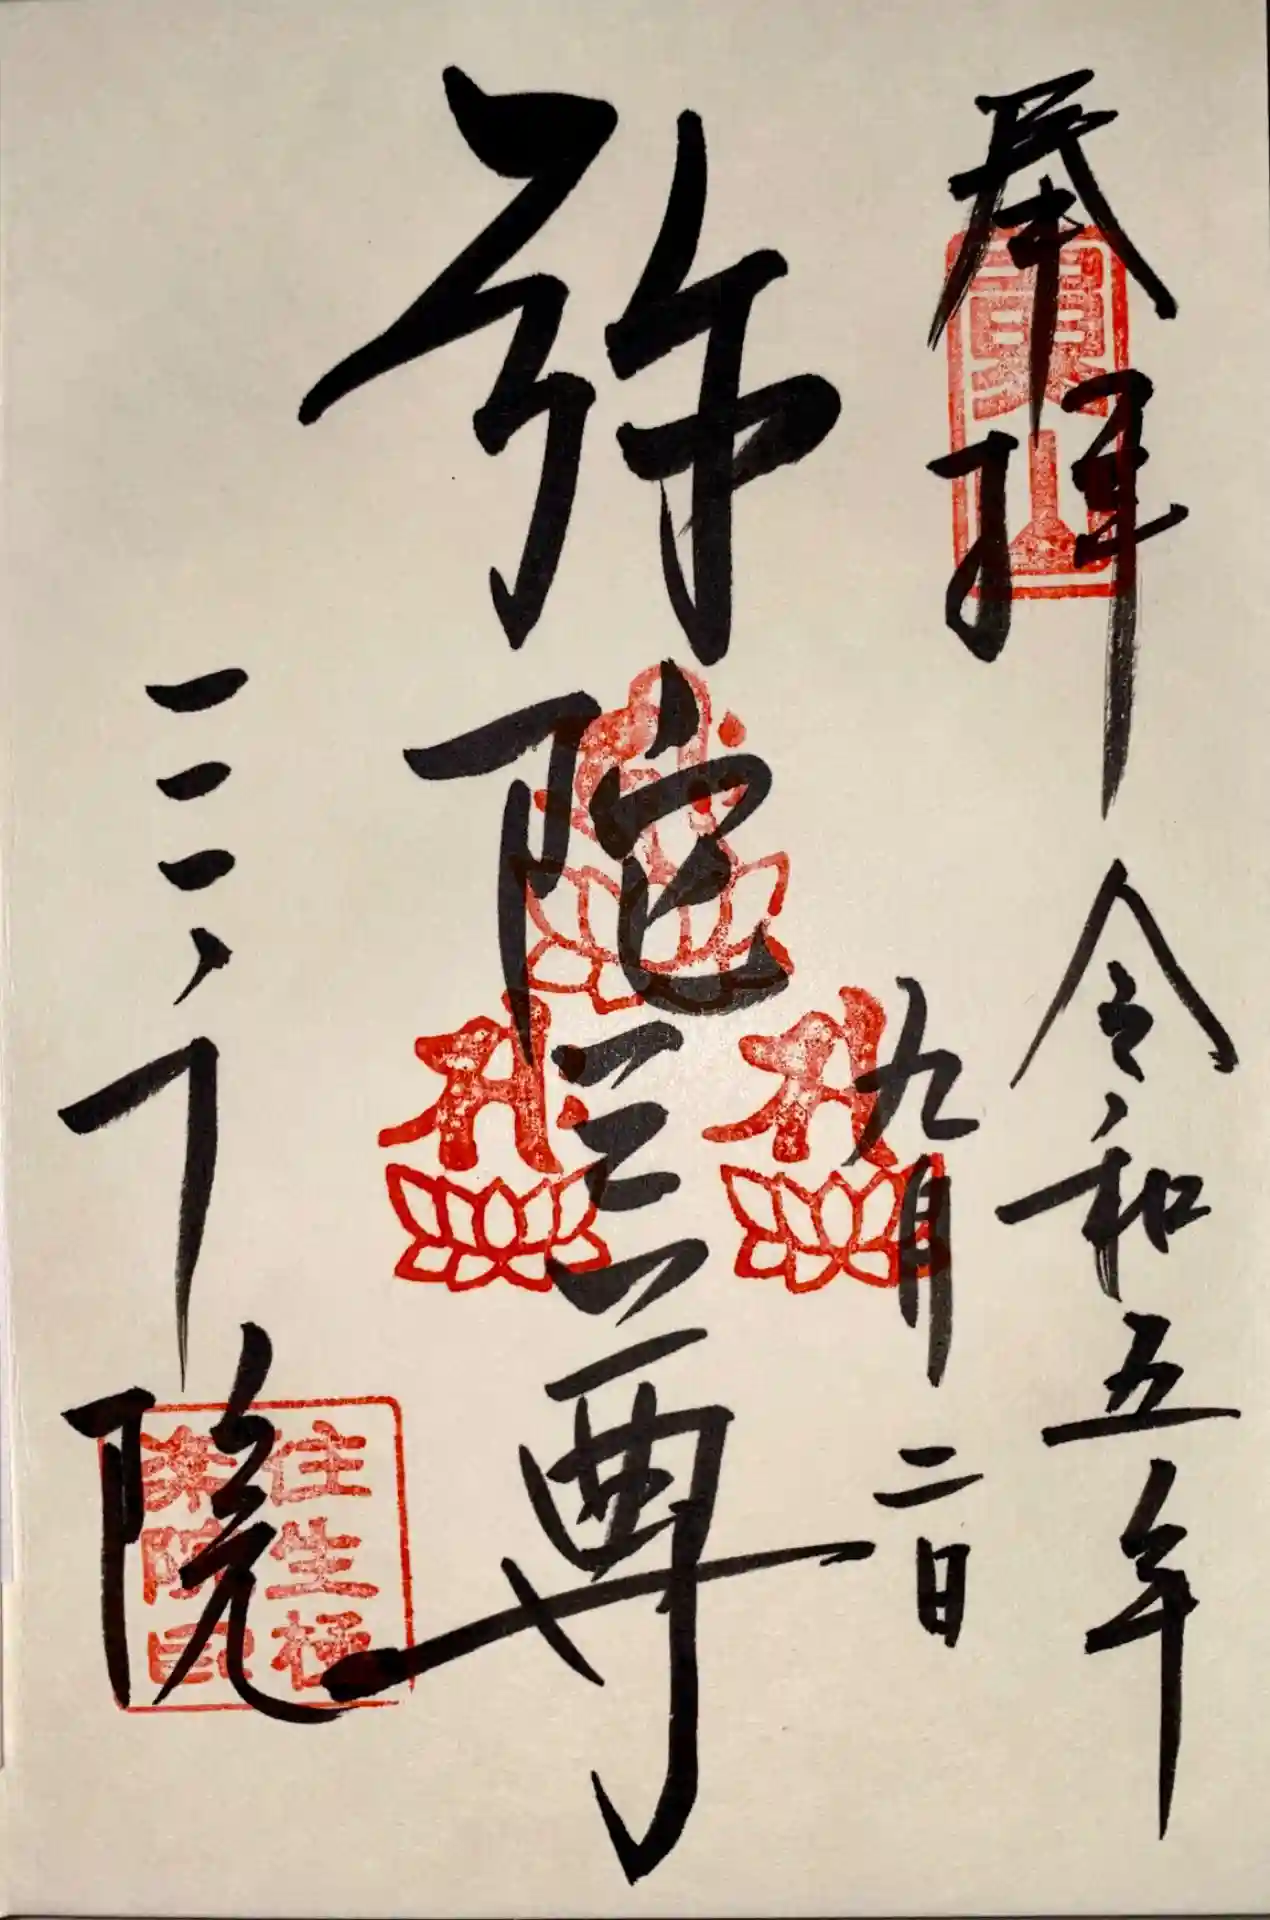 奉拝
山
令和五年
九月二日
弥陀三尊
三千院
往生極
楽院印